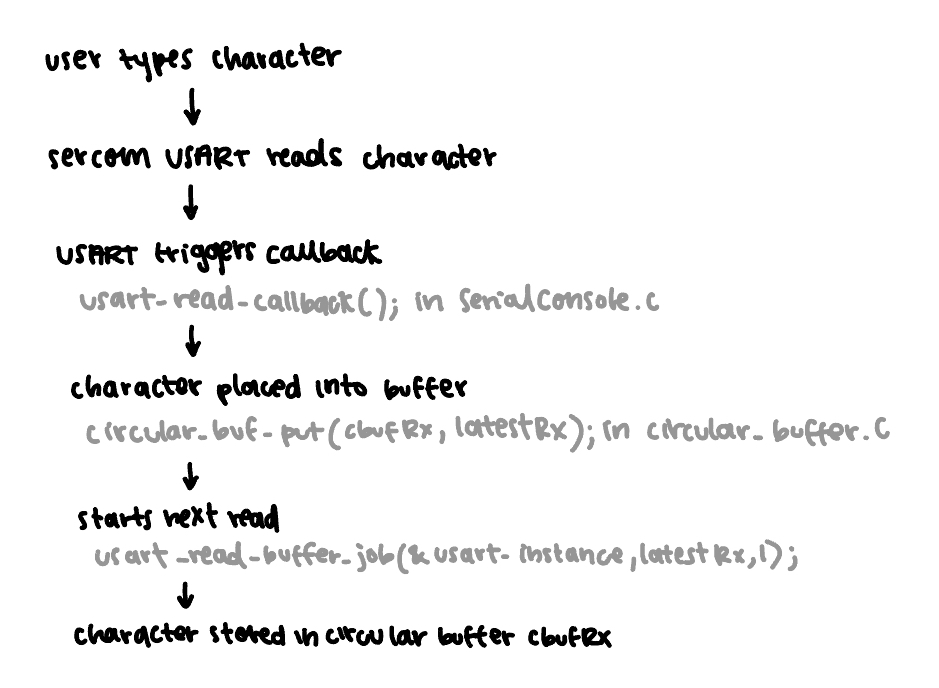 user types character
sercom USART reads character
USART triggers callback
usart_read_callback(); in SerialConsole.c
character placed into buffer
circular_buf_put(cbufRx, latestRx); in circular_buffer.c
starts next read
usart_read_buffer_job(&usart_instance, latestRx, 1);
character stored in circular buffer cbufRx